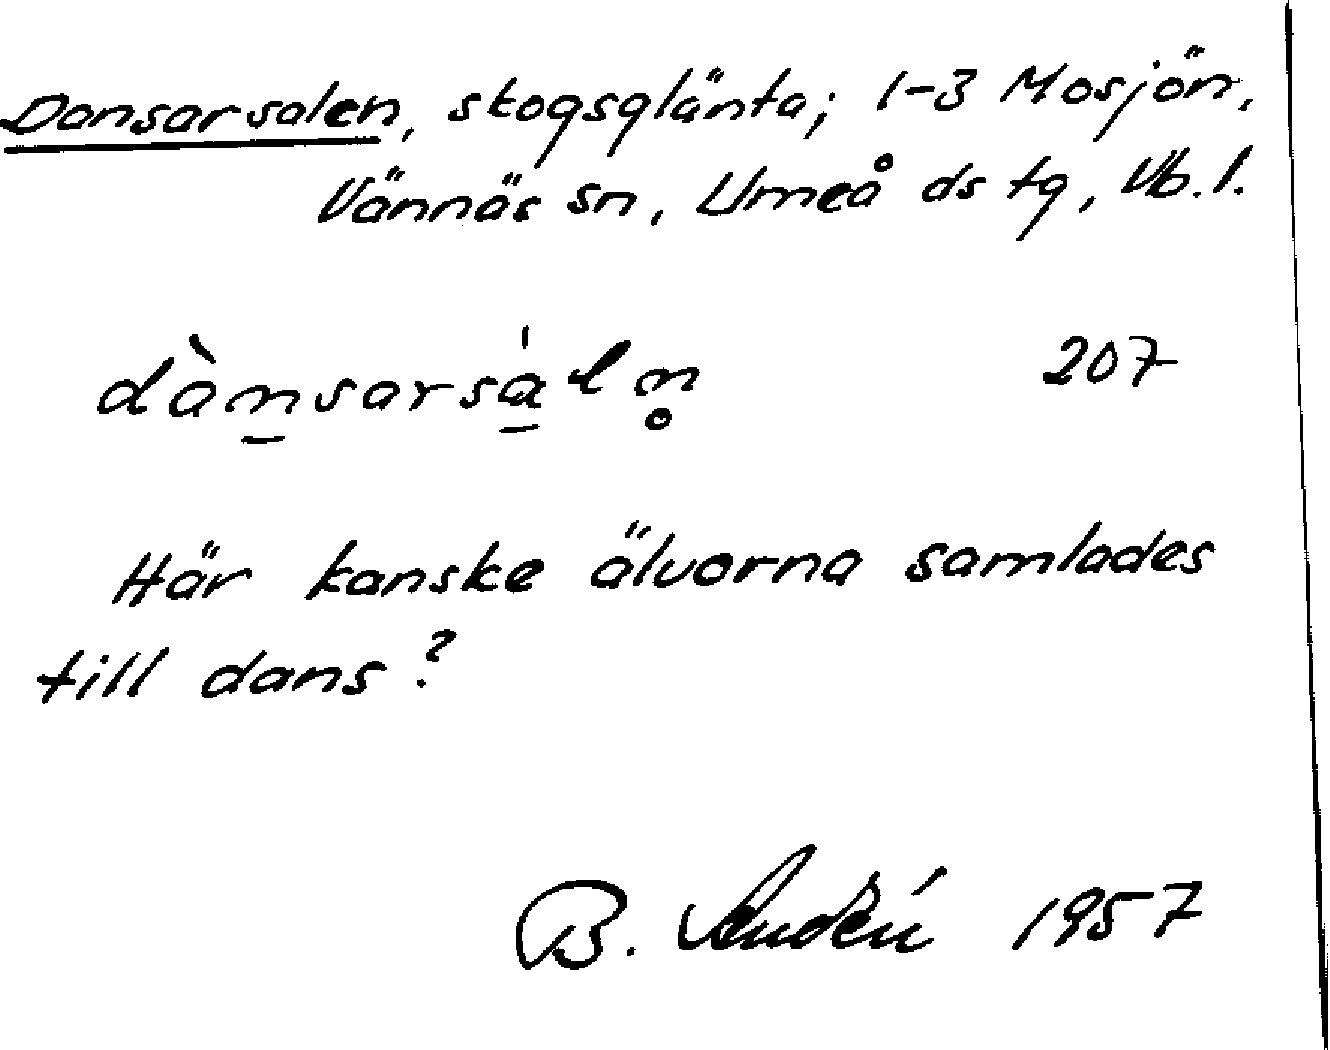 Dansarsalen, skogsglänta; 1-3 Mosjön,
Vännäs sn, Umeå ds tg, Vb. l.
dàn̲sarsa̲̍ln̥ 207
Här kanske älvorna samlades
till dans?
B. Audén 1957